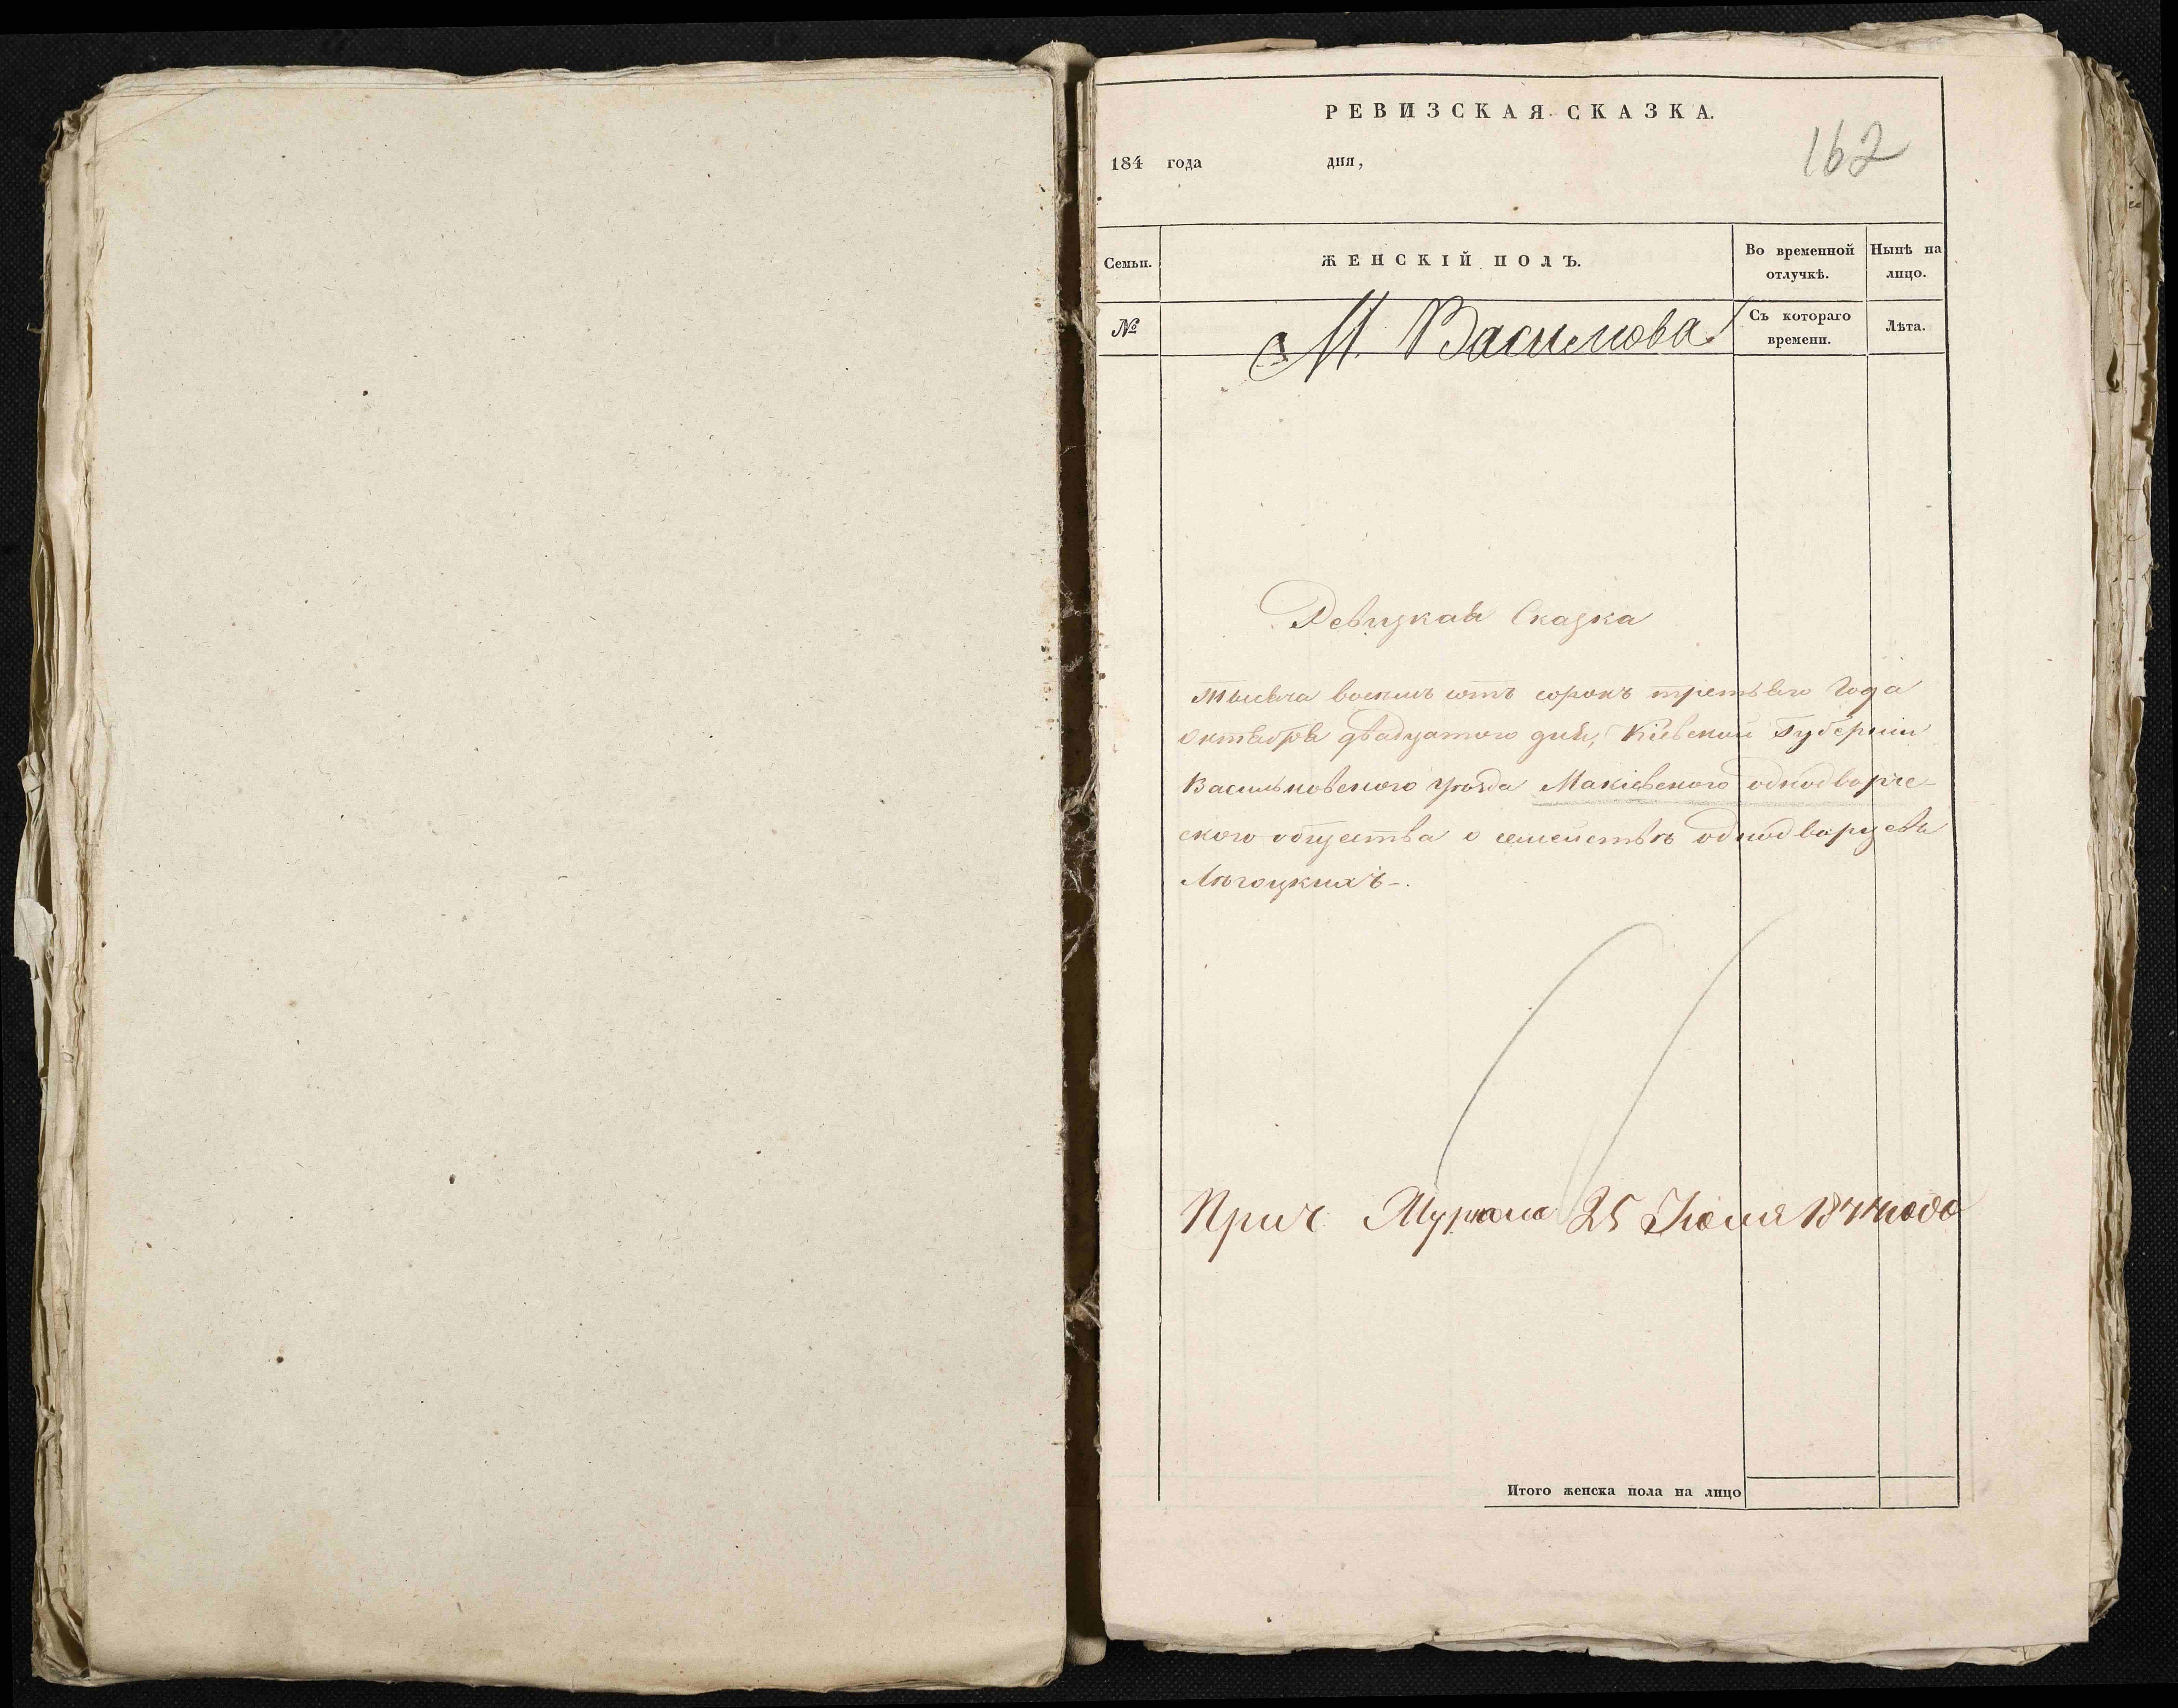 РЕВИЗСКАЯ СКАЗКА.
162
184 года дня,
Семьи. ЖЕНСКІЙ ПОЛЪ. Во временной отлучкѣ. Нынѣ на лицо.
№ Съ котораго времени. Лѣта.
М. Василькова
Ревизкая Сказка
тысяча восемь сотъ сорокъ третьяго года
октября двадцатого дня, Кіевской Губерніи
Васильковского уѣзда Макіевского однодворче-
ского общества о семействѣ однодворцевъ
Прич 25 Іюля 1844 года
Итого женска пола на лицо